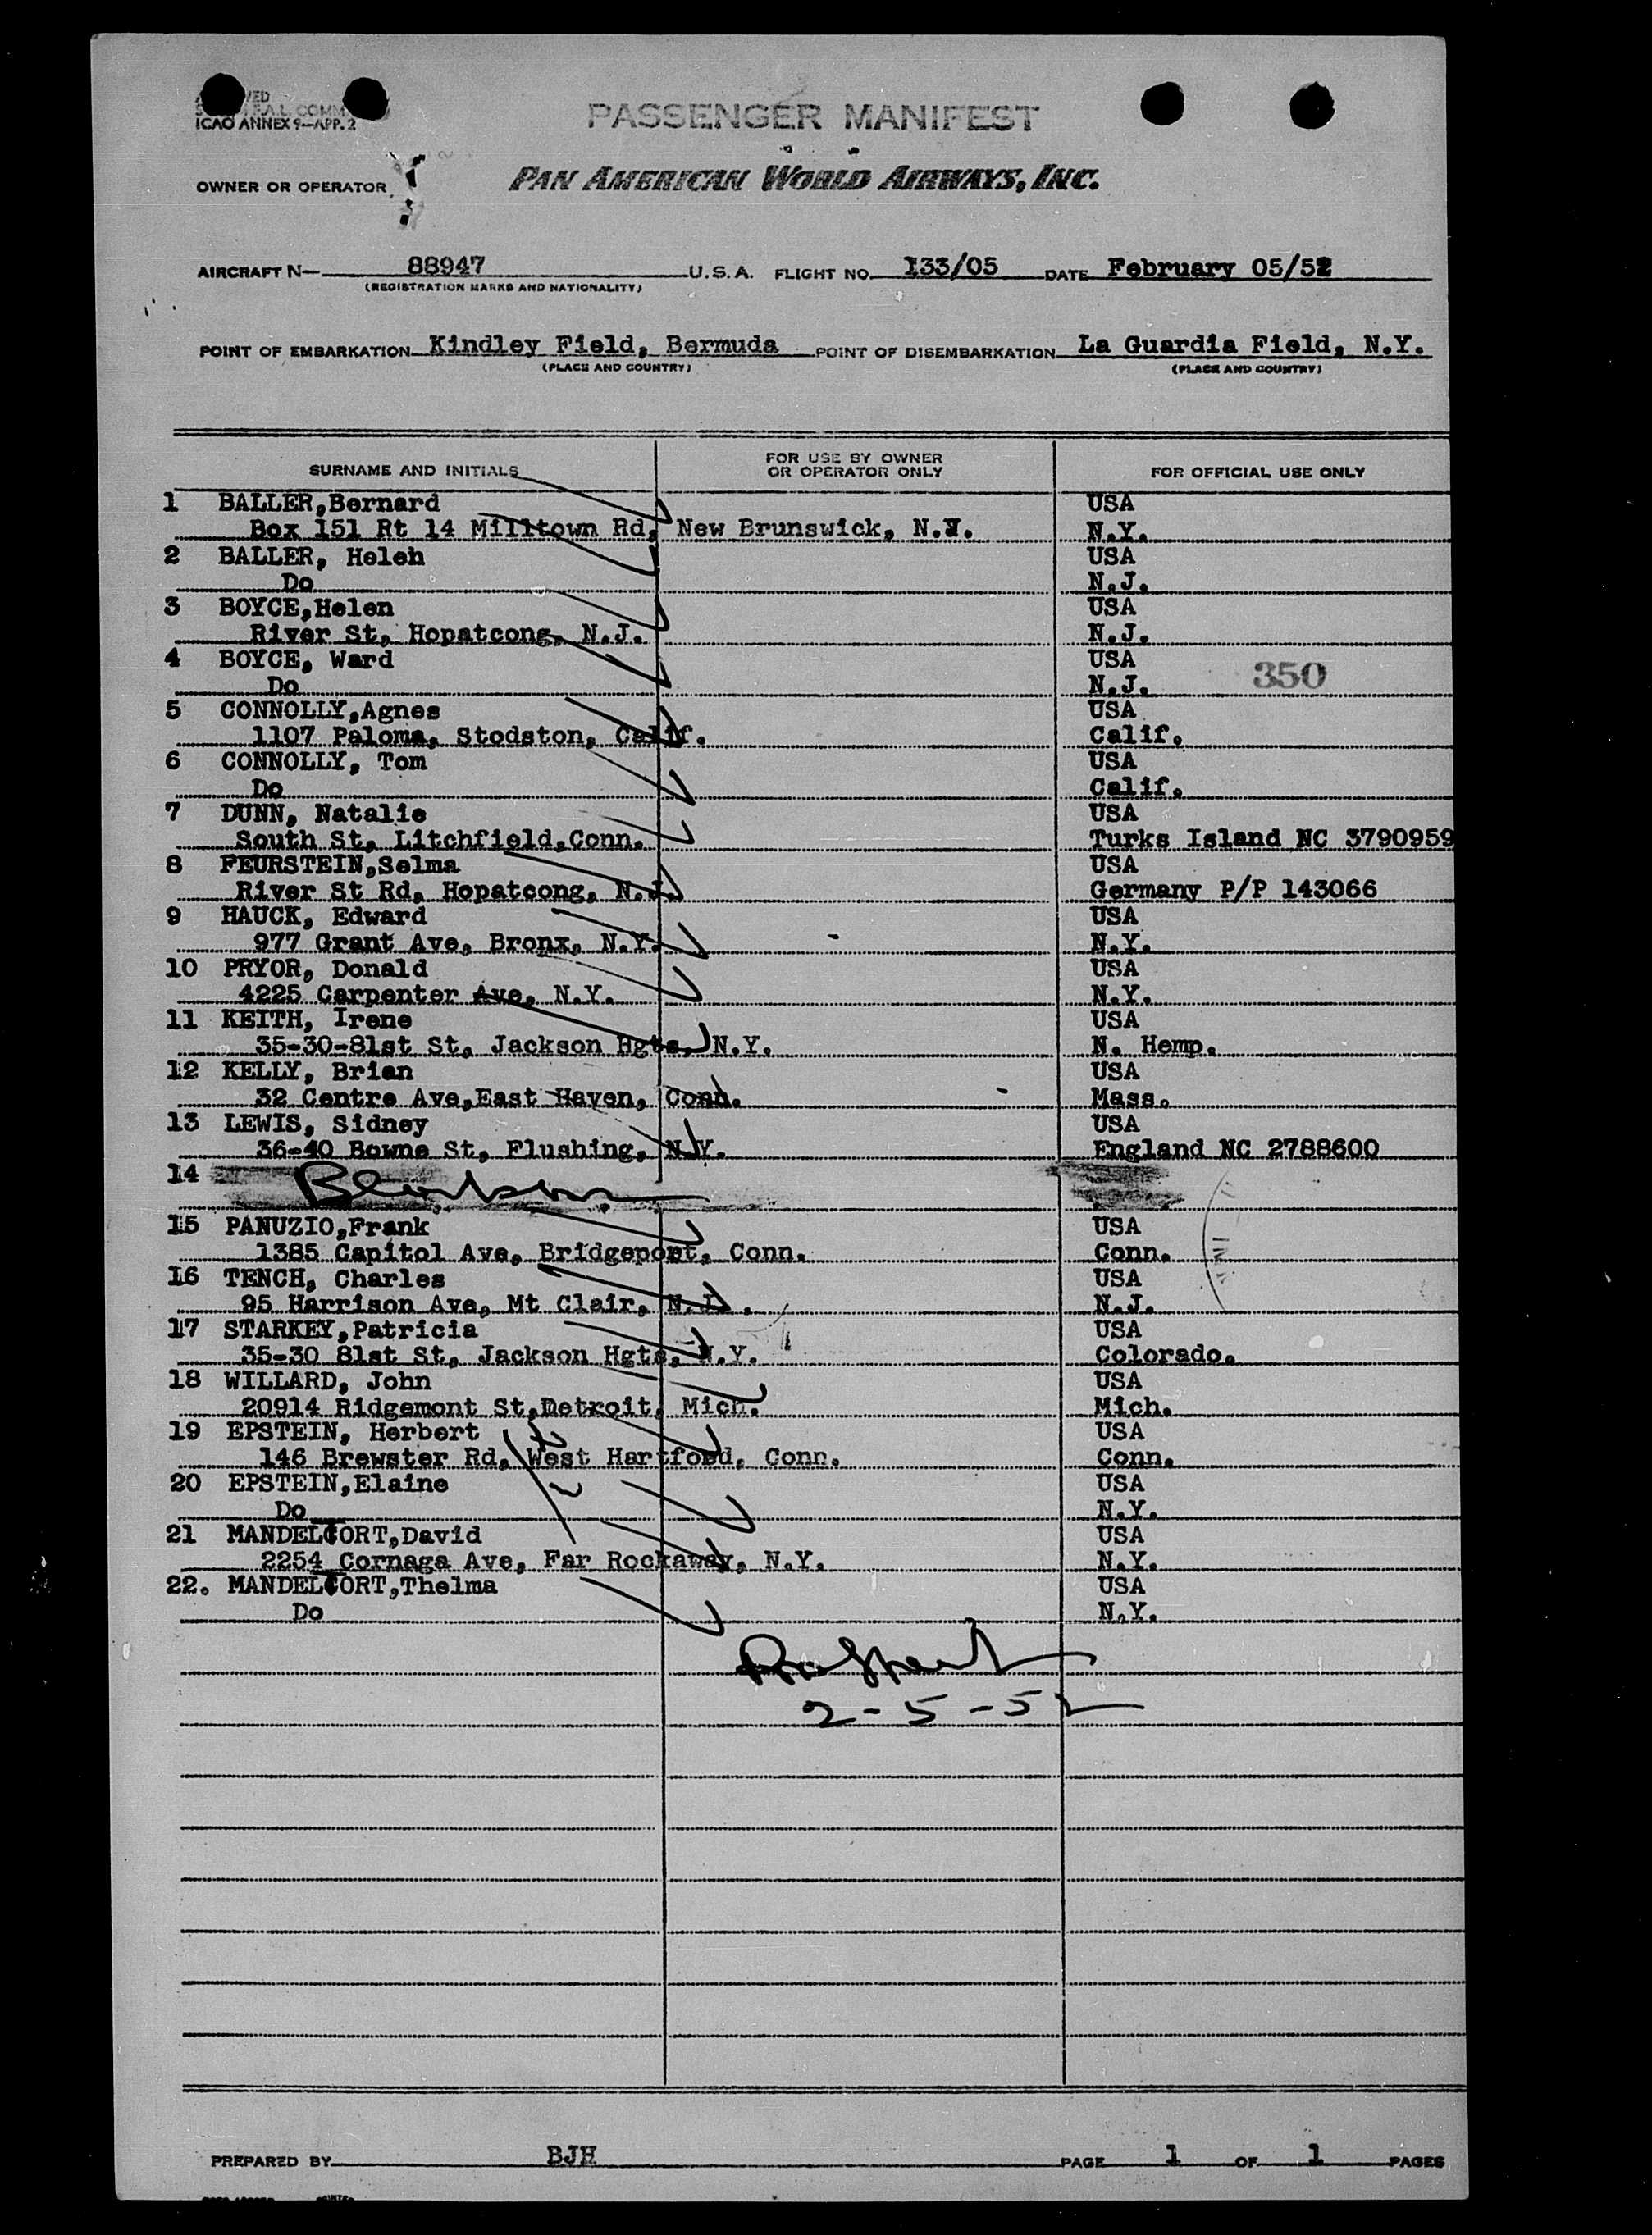 ICAO ANNEX 9—APP. 2
PASSENGER MANIFEST
OWNER OR OPERATOR
PAN AMERICAN WORLD AIRWAYS, INC.
AIRCRAFT N— 88947 U.S.A. FLIGHT NO. 133/05 DATE February 05/52
(REGISTRATION MARKS AND NATIONALITY)
POINT OF EMBARKATION Kindley Field, Bermuda POINT OF DISEMBARKATION La Guardia Field, N.Y.
(PLACE AND COUNTRY) (PLACE AND COUNTRY)
SURNAME AND INITIALS FOR USE BY OWNER OR OPERATOR ONLY FOR OFFICIAL USE ONLY
1 BALLER,Bernard USA
Box 151 Rt 14 Milltown Rd, New Brunswick, N.J. N.Y.
2 BALLER, Helen USA
Do N.J.
3 BOYCE,Helen USA
River St, Hopatcong, N.J. N.J.
4 BOYCE, Ward USA
Do N.J. 350
5 CONNOLLY,Agnes USA
1107 Paloma, Stodston, Calif. Calif.
6 CONNOLLY, Tom USA
Do Calif.
7 DUNN, Natalie USA
South St, Litchfield,Conn. Turks Island NC 3790959
8 FEURSTEIN,Selma USA
River St Rd, Hopatcong, N.J. Germany P/P 143066
9 HAUCK, Edward USA
977 Grant Ave, Bronx, N.Y. N.Y.
10 PRYOR, Donald USA
4225 Carpenter Ave, N.Y. N.Y.
11 KEITH, Irene USA
35-30-81st St, Jackson Hgts, N.Y. N. Hemp.
12 KELLY, Brian USA
32 Centre Ave,East Haven, Conn. Mass.
13 LEWIS, Sidney USA
36-40 Bowne St, Flushing, N.Y. England NC 2788600
14
15 PANUZIO,Frank USA
1385 Capitol Ave, Bridgeport, Conn. Conn.
16 TENCH, Charles USA
95 Harrison Ave, Mt Clair, N.J. N.J.
17 STARKEY,Patricia USA
35-30 81st St, Jackson Hgts, N.Y. Colorado.
18 WILLARD, John USA
20914 Ridgemont St,Detroit, Mich. Mich.
19 EPSTEIN, Herbert USA
146 Brewster Rd, West Hartford, Conn. Conn.
20 EPSTEIN,Elaine USA
Do N.Y.
21 MANDELTORT,David USA
2254 Cornaga Ave, Far Rockaway, N.Y. N.Y.
22. MANDELTORT,Thelma USA
Do N.Y.
2-5-52
PREPARED BY BJH PAGE 1 OF 1 PAGES